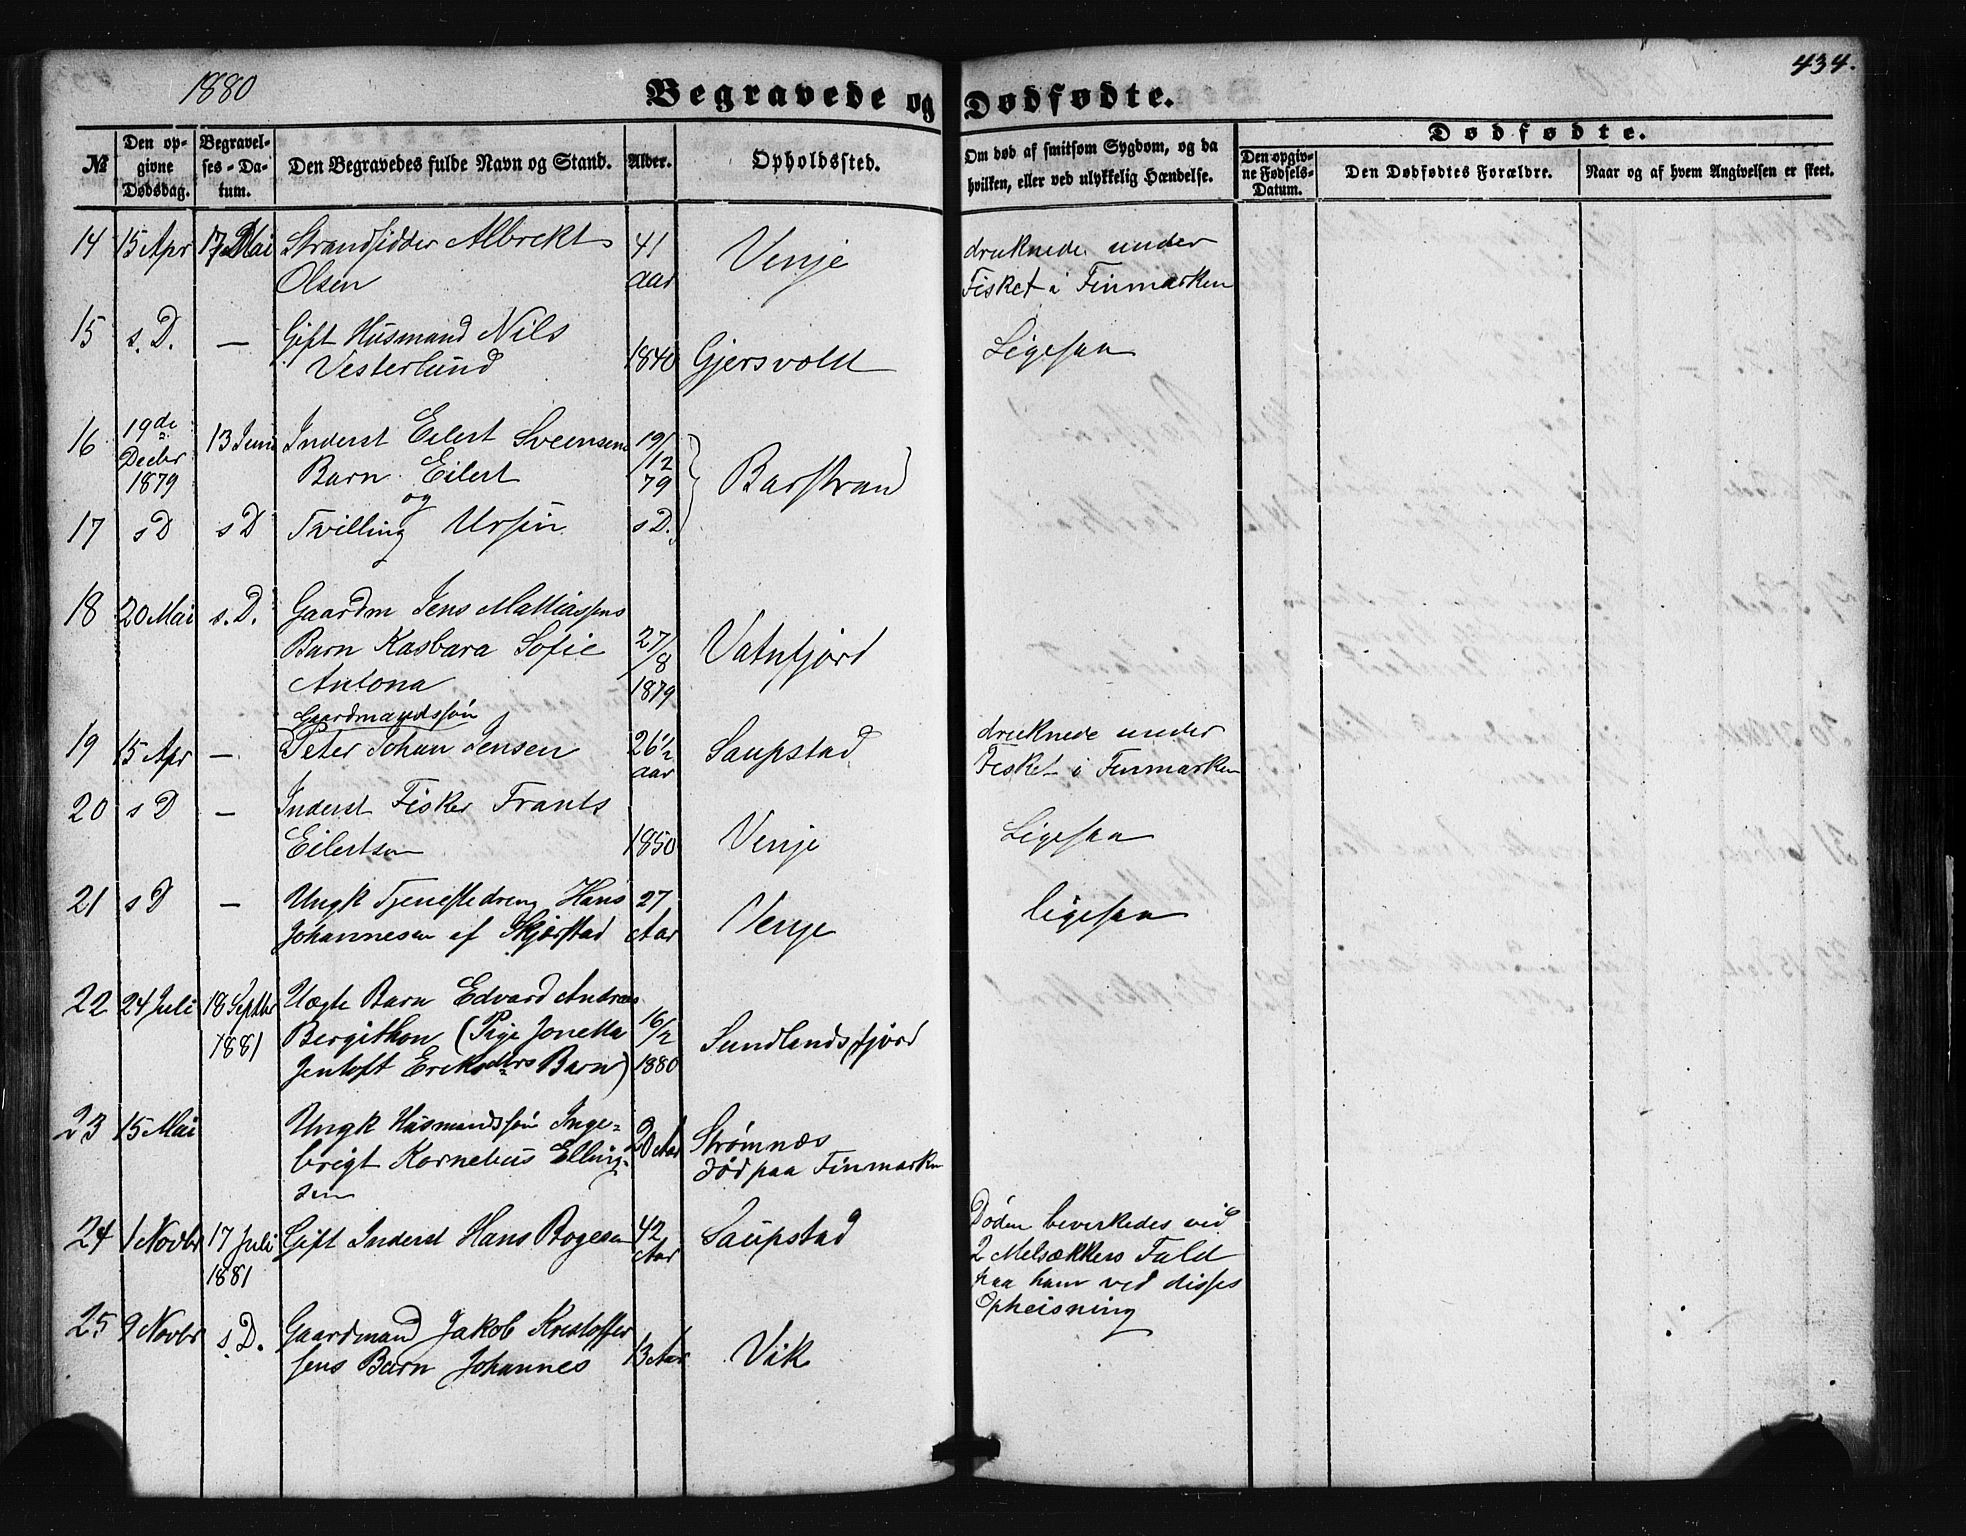 1880
434.
Begravede og Dødfødte.
№
Den opgivne Dødsdag.
Begravelses-Datum.
Den Begravedes fulde Navn og Stand.
Alder.
Opholdssted.
Om død af smitsom Sygdom, og da hvilken, eller ved ulykkelig Hændelse.
Dødfødte.
Den opgivne Fødsels-Datum.
Den Dødfødtes Forældre.
Naar og af hvem Angivelsen er skeet.
14 15 Apr 17 Mai Strandsidder Albrekt 41 Venje druknede under
Olsen aar Fisket i Finmarken
15 s. D. — Gift Husmand Nils
Vesterlund 1840 Gjersvold Ligesaa
16 19de Decbr 1879 13 Juni Inderst Eilert Sveensens 19/12 79
Barn Eilert Barstrand
og
17 s D s D Tvilling Ursin s D.
18 20 Mai s. D. Gaardm Jens Mathiassens
Barn Kasbara Sofie 27/8 1879 Vatnfjord
Antona
Gaardmandssøn
19 15 Apr — Peter Johan Jensen 26½ aar Saupstad druknede under
Fisket i Finmarken
20 s D — Inderst Fisker Frants
Eilertsen 1850 Venje Ligesaa
21 s D — Ungk Tjenestedreng Hans 27 Venje ligesaa
Johannesen af Skjørstad Aar
22 24 Juli 18 Septbr 1881 Uægte Barn Edvard Andreas
Bergithon (Pige Jonetta 16/2 1880 Sundlandsfjord
Jentoft Eriksdtrs Barn)
23 15 Mai Ungk Husmandssøn Inge=
brigt Kornelius Elling= 20 Aar Strømnæs
sen død paa Finmarken
24 1 Novbr 17 Juli 1881 Gift Inderst Hans Bogesen 42 Aar Saupstad Døden bevirkedes ved
2 Melsækkers Fald
paa ham ved disses
Opheisning
25 9 Novbr s. D. Gaardmand Jakob Kristoffer
sens Barn Johannes 13 Aar Vik